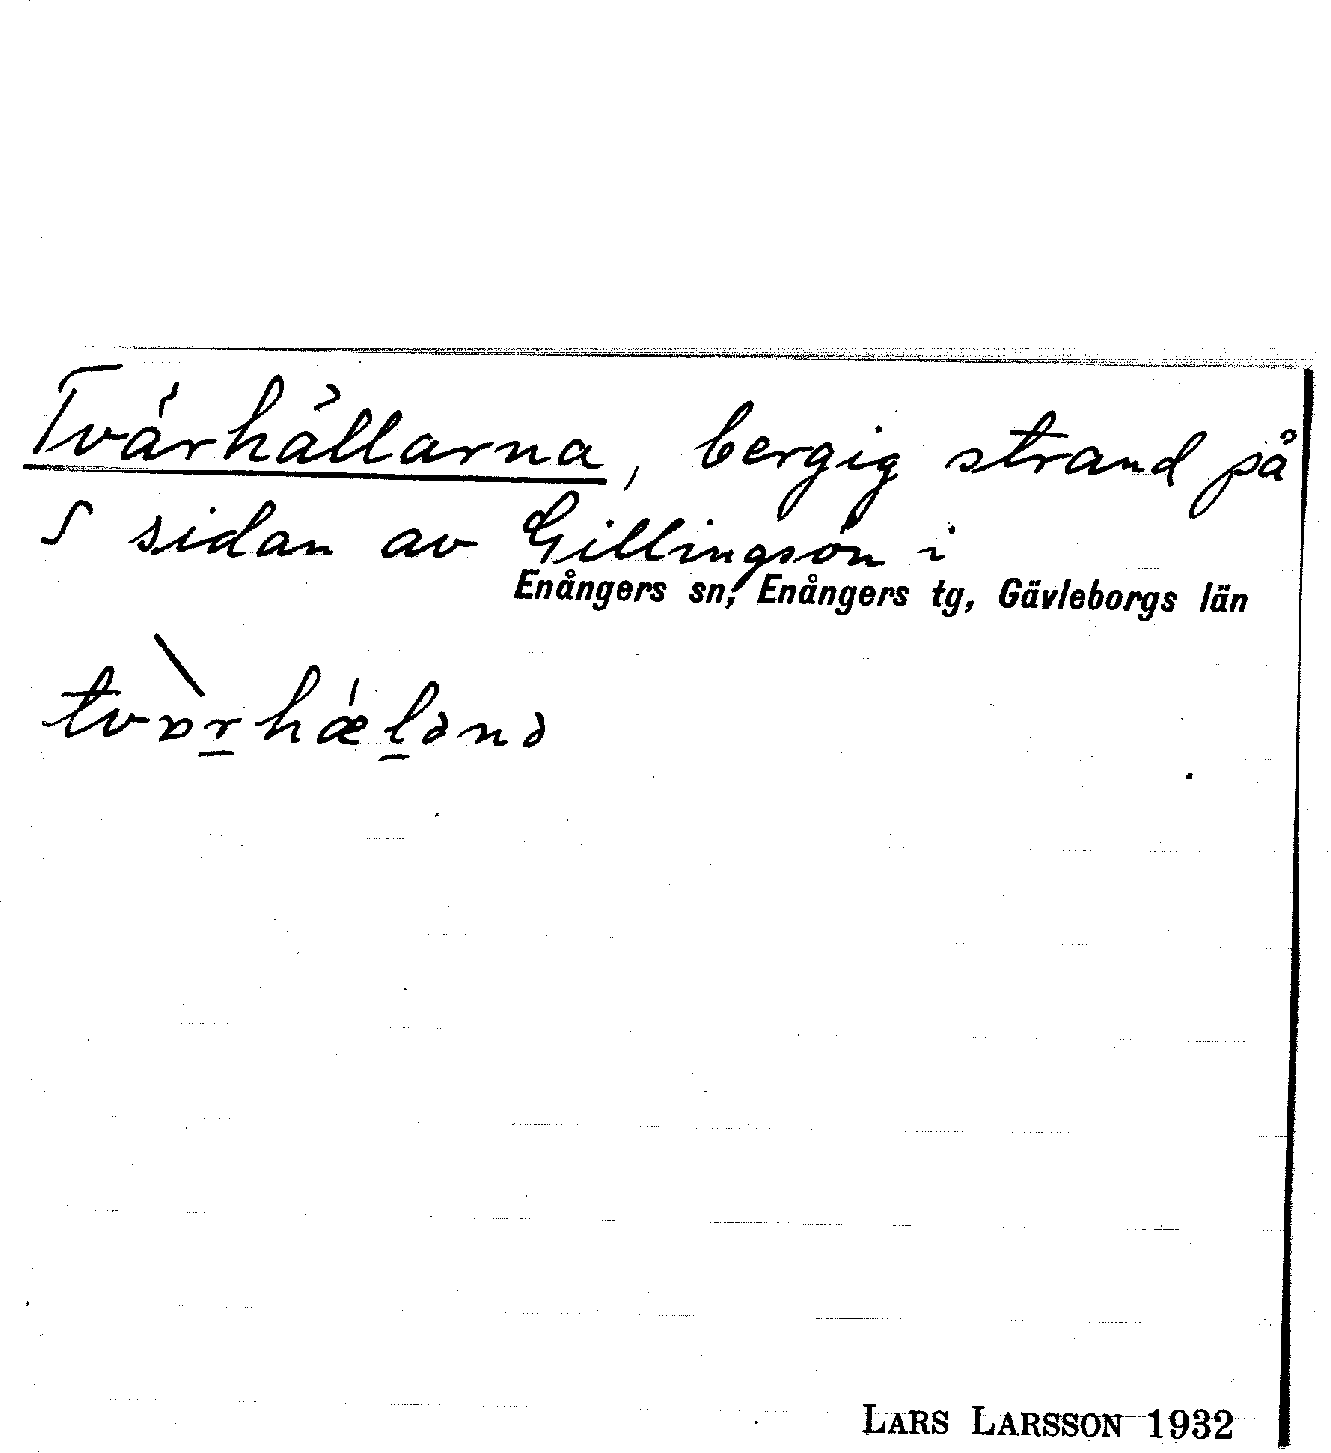 Tvärhällarna, bergig strand på
S sidan av Gillingsön i
Enångers sn, Enångers tg, Gävleborgs län
LARS LARSSON 1932